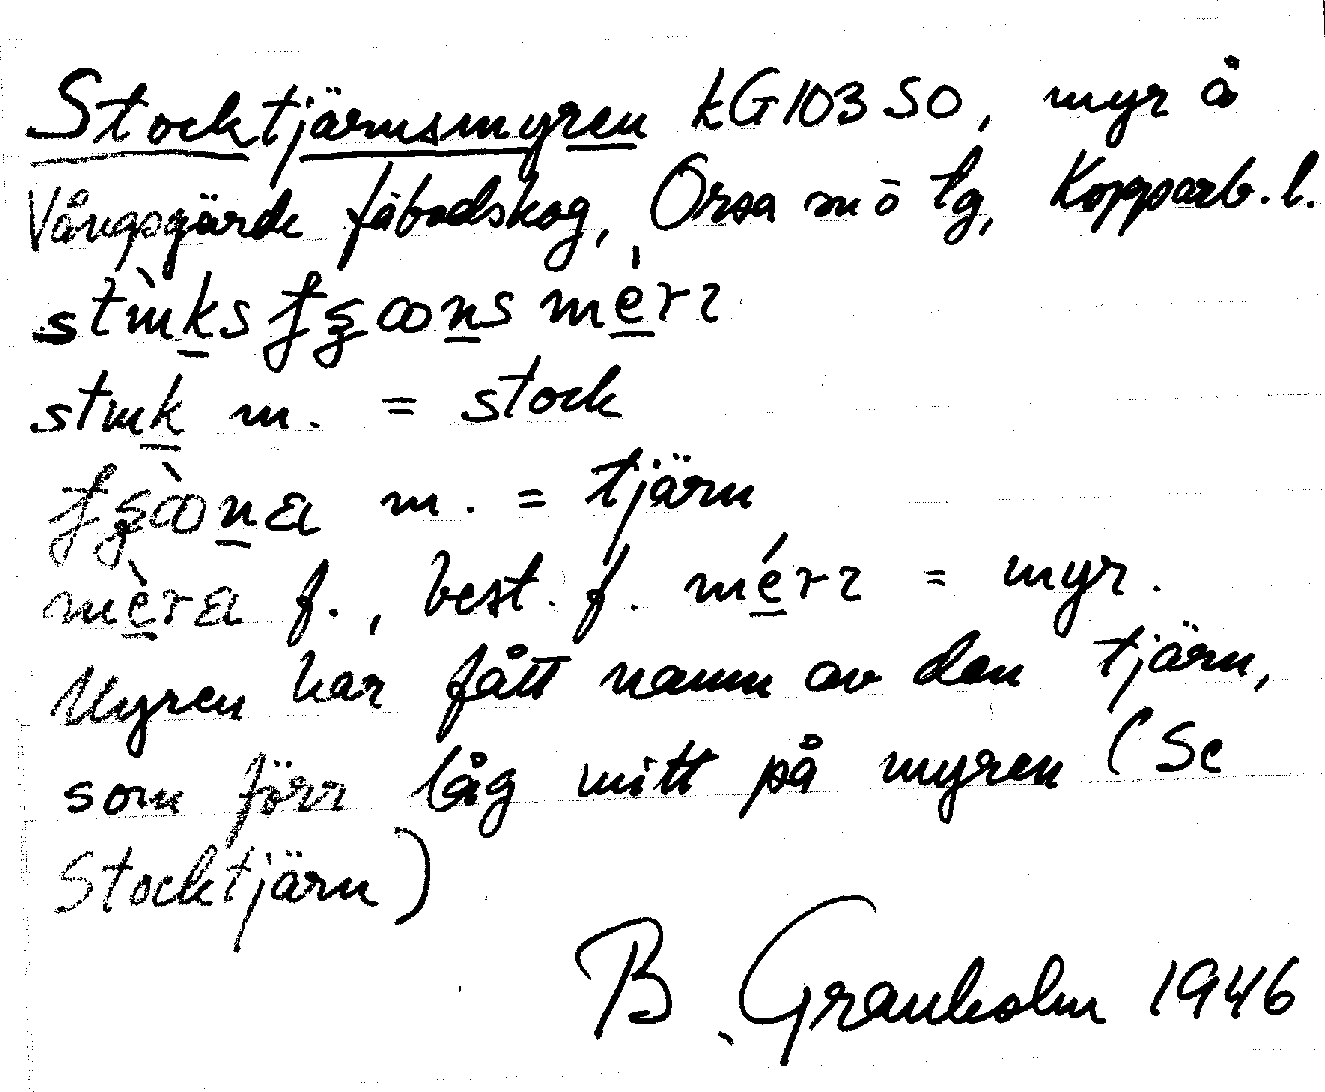 Stocktjärnsmyren kG103 SO, myr å
Vångsgärde fäbodskog, Orsa snö tg, Kopparb. l.
m. = stock
m. = tjärn
f., best. f. = myr.
Myren har fått namn av den tjärn,
som förr låg mitt på myren (Se
Stocktjärn)
B. Granholm 1946